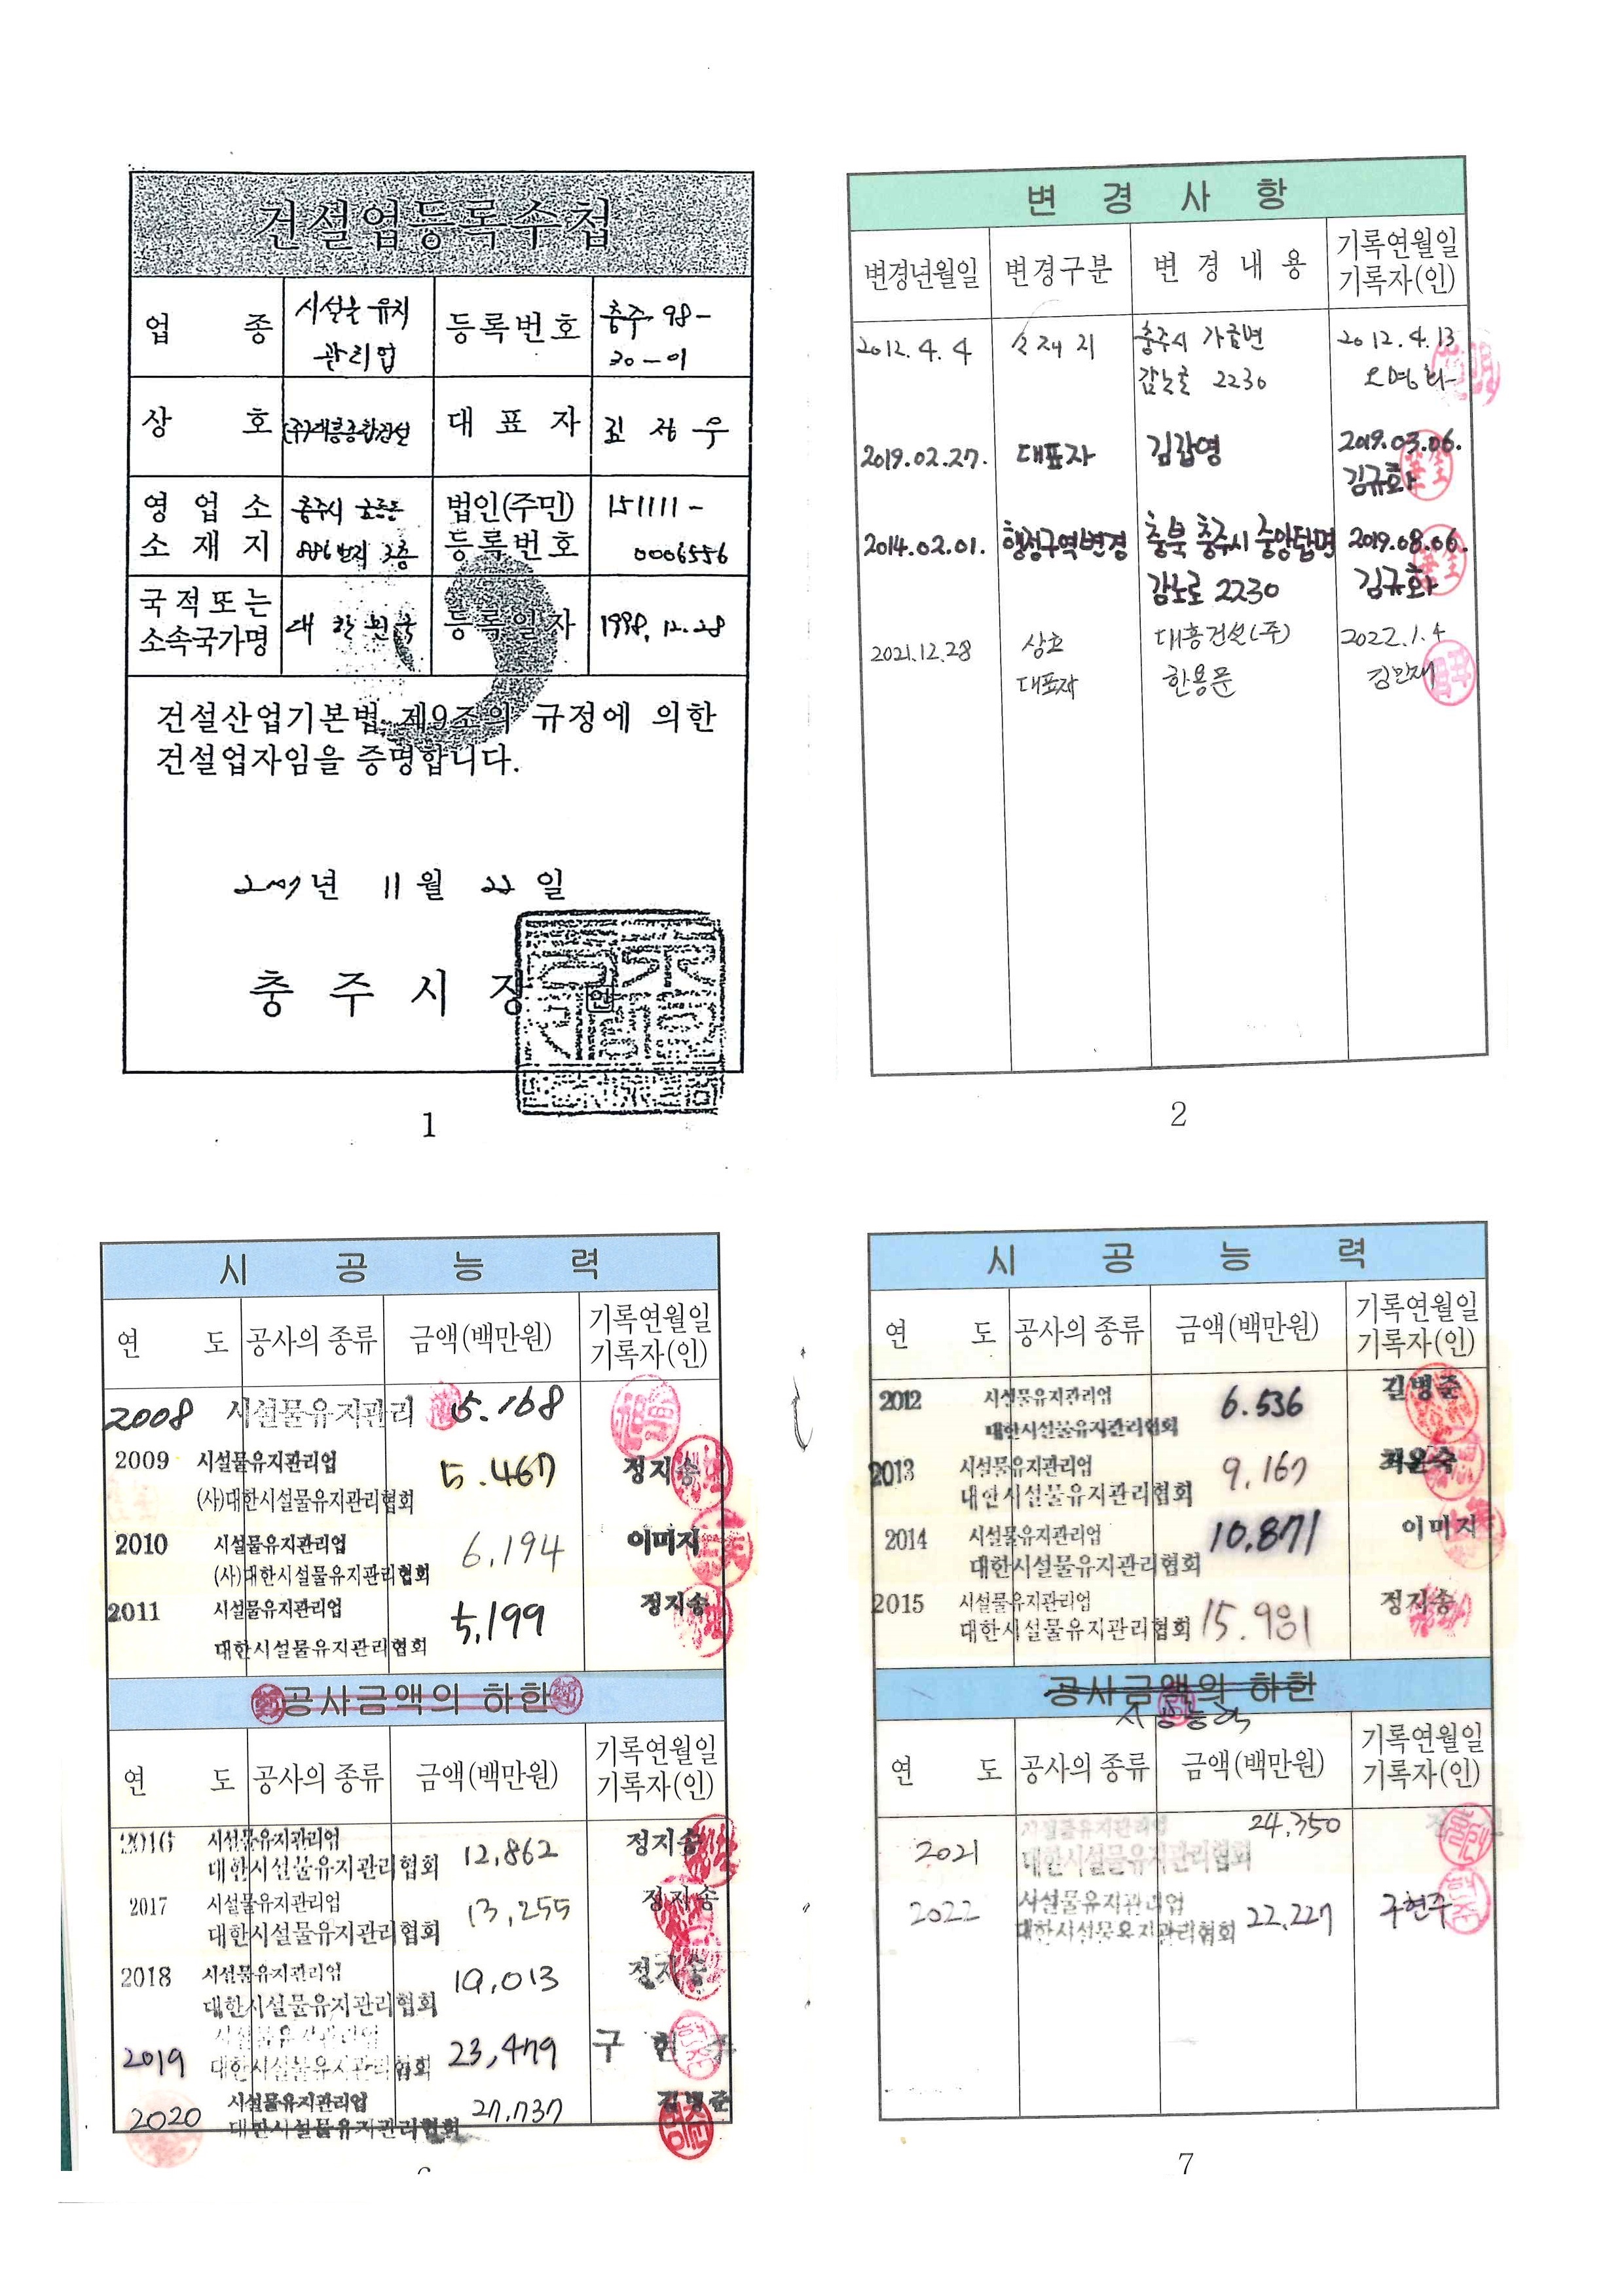 건설업등록수첩
업 종
시설물 유지
관리업
등록번호
충주 98-
30-01
상 호
(주)대흥종합건설
대 표 자
김 정 우
영 업 소
소 재 지
충주시
886번지 3층
법인(주민)
등록번호
151111-
0006556
국적또는
소속국가명
대 한 민 국
등록일자
1998. 12. 28
건설산업기본법 제9조의 규정에 의한
건설업자임을 증명합니다.
2007년 11월 22일
충 주 시 장
인
1
변 경 사 항
변경년월일
변경구분
변 경 내 용
기록연월일
기록자(인)
2012. 4. 4
소 재 지
충주시 가금면
감노로 2230
2012. 4. 13
2019.02.27.
대표자
김갑영
2019.03.06.
김규화
2014.02.01.
행정구역변경
충북 충주시 중앙탑면
감노로 2230
2019.08.06.
김규화
2021.12.28
상호
대표자
대흥건설(주)
한용문
2022.1.4
김민재
2
시 공 능 력
연 도
공사의 종류
금액(백만원)
기록연월일
기록자(인)
2008
시설물유지관리
5.168
2009
시설물유지관리업
(사)대한시설물유지관리협회
5.467
정지송
2010
시설물유지관리업
(사)대한시설물유지관리협회
6,194
이미지
2011
시설물유지관리업
대한시설물유지관리협회
5,199
정지송
공사금액의 하한
연 도
공사의 종류
금액(백만원)
기록연월일
기록자(인)
2016
시설물유지관리업
대한시설물유지관리협회
12,862
정지송
2017
시설물유지관리업
대한시설물유지관리협회
13,255
정지송
2018
시설물유지관리업
대한시설물유지관리협회
19,013
정지송
2019
시설물유지관리업
대한시설물유지관리협회
23,479
구 현 주
2020
시설물유지관리업
대한시설물유지관리협회
27,737
김병준
시 공 능 력
연 도
공사의 종류
금액(백만원)
기록연월일
기록자(인)
2012
시설물유지관리업
대한시설물유지관리협회
6.536
김병준
2013
시설물유지관리업
대한시설물유지관리협회
9,167
최윤숙
2014
시설물유지관리업
대한시설물유지관리협회
10,871
이미지
2015
시설물유지관리업
대한시설물유지관리협회
15.981
정지송
공사금액의 하한
시공능력
연 도
공사의 종류
금액(백만원)
기록연월일
기록자(인)
2021
시설물유지관리업
대한시설물유지관리협회
24,350
2022
시설물유지관리업
대한시설물유지관리협회
22,227
구현주
7